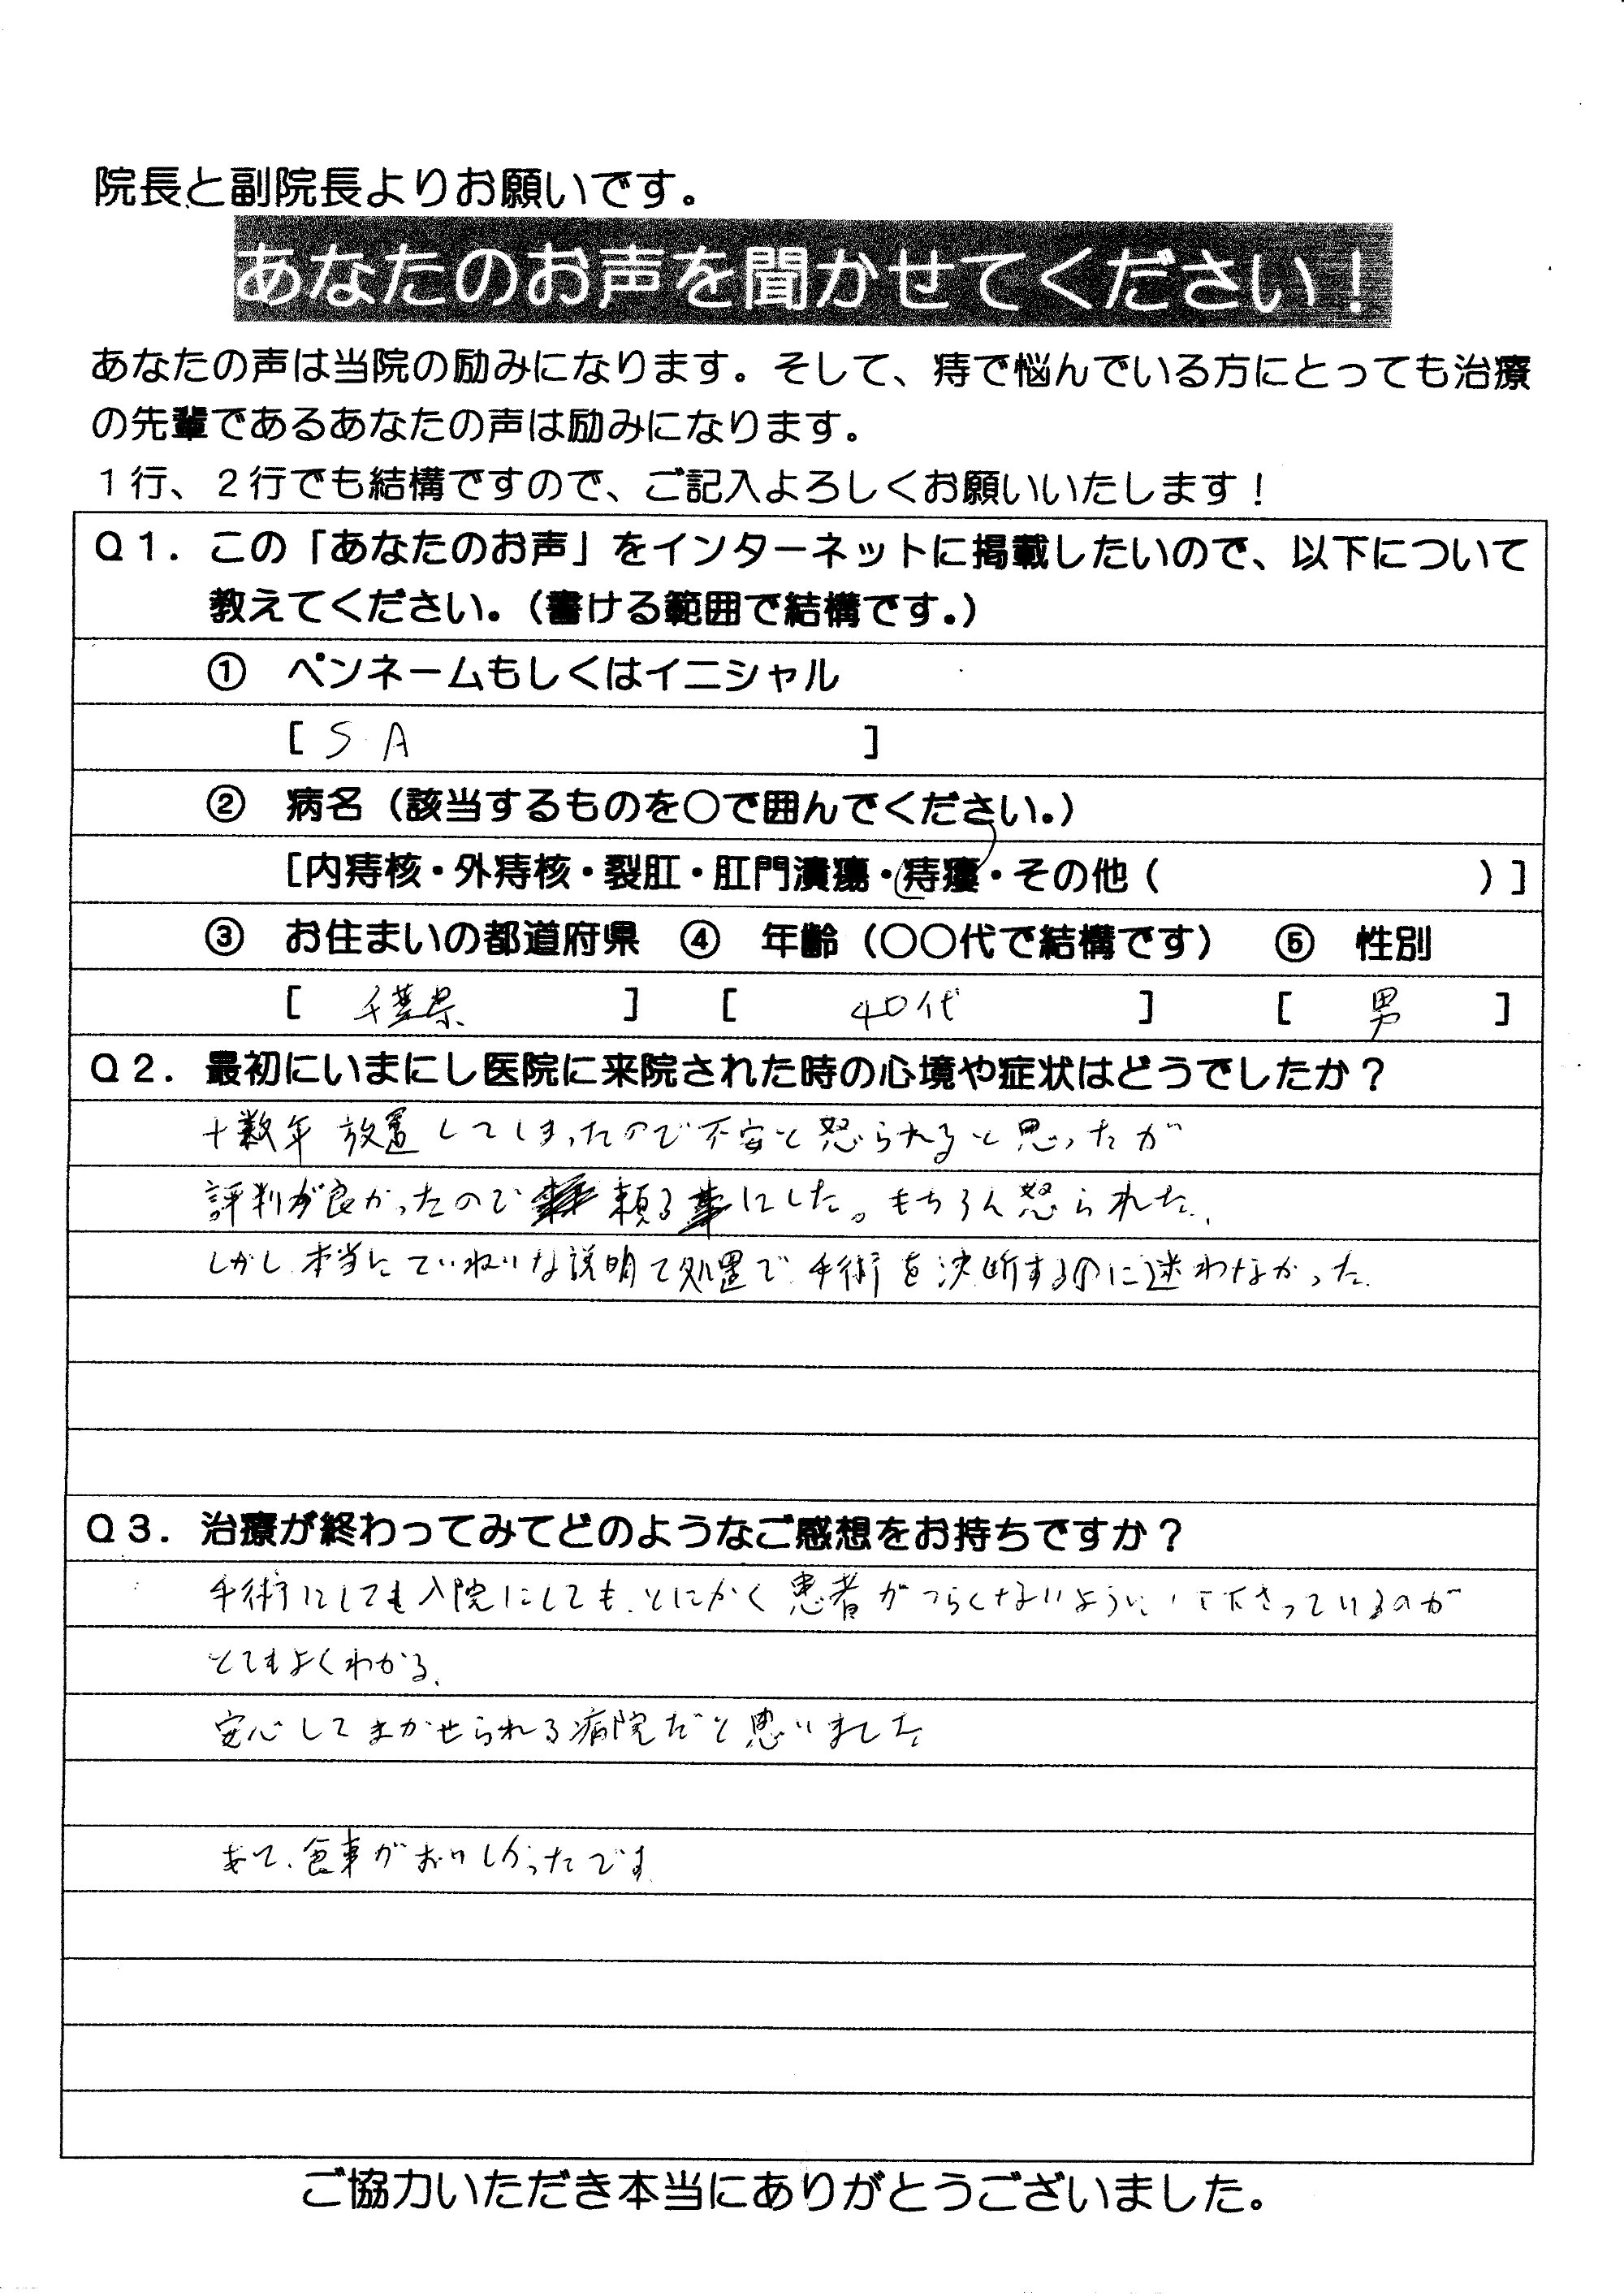 院長と副院長よりお願いです。
あなたのお声を聞かせてください！
あなたの声は当院の励みになります。そして、痔で悩んでいる方にとっても治療
の先輩であるあなたの声は励みになります。
１行、２行でも結構ですので、ご記入よろしくお願いいたします！
Ｑ１．この「あなたのお声」をインターネットに掲載したいので、以下について
教えてください。（書ける範囲で結構です。）
① ペンネームもしくはイニシャル
[ S.A ]
② 病名（該当するものを○で囲んでください。）
[内痔核・外痔核・裂肛・肛門潰瘍・痔瘻・その他（ ）]
③ お住まいの都道府県 ④ 年齢（○○代で結構です） ⑤ 性別
[ 千葉県 ] [ 40代 ] [ 男 ]
Ｑ２．最初にいまにし医院に来院された時の心境や症状はどうでしたか？
十数年放置してしまったので不安と怒られると思ったが
評判が良かったので頼る事にした。もちろん怒られた、
しかし本当にていねいな説明て処置で手術を決断するのに迷わなかった。
Ｑ３．治療が終わってみてどのようなご感想をお持ちですか？
手術にしても入院にしても、とにかく患者がつらくないように下さっているのが
とてもよくわかる。
安心してまかせられる病院だと思いました
あと、食事がおいしかったです
ご協力いただき本当にありがとうございました。